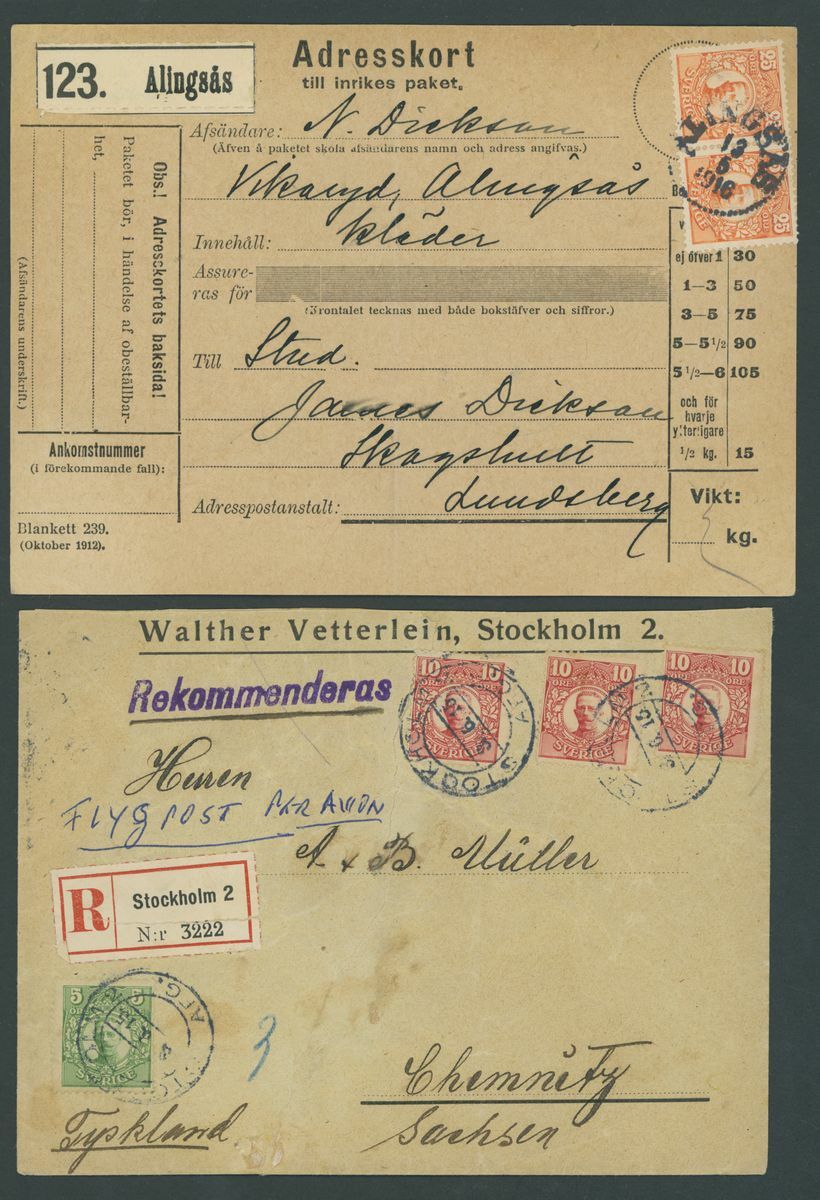 123. Alingsås
Adresskort
till inrikes paket.
Afsändare: N. Dickson
(Äfven å paketet skola afsändarens namn och adress angifvas.)
Vikaryd, Alingsås
Innehåll: kläder
Assure-
ras för
(Krontalet tecknas med både bokstäfver och siffror.)
Till Stud.
James Dickson
Skogshult
Adresspostanstalt: Lundsberg
Obs.! Adresskortets baksida!
Paketet bör, i händelse af obeställbar-
het,
(Afsändarens underskrift.)
Ankomstnummer
(i förekommande fall):
Blankett 239.
(Oktober 1912).
25 ÖRE
SVERIGE
25
ALINGSÅS
13
6
1916
ej öfver 1 30
1—3 50
3—5 75
5—5 1/2 90
5 1/2—6 105
och för
hvarje
ytterligare
1/2 kg. 15
Vikt:
kg.
Walther Vetterlein, Stockholm 2.
Rekommenderas
10 10
ÖRE
SVERIGE
10 10
ÖRE ÖRE
SVERIGE
10 10
ÖRE ÖRE
SVERIGE
STOCKHOLM
AFG.
6.15
Herren
FLYGPOST PER AVION
A & B. Müller
R Stockholm 2
N:r 3222
5 5
ÖRE
SVERIGE
AFG.
3
Chemnitz
Sachsen
Tyskland